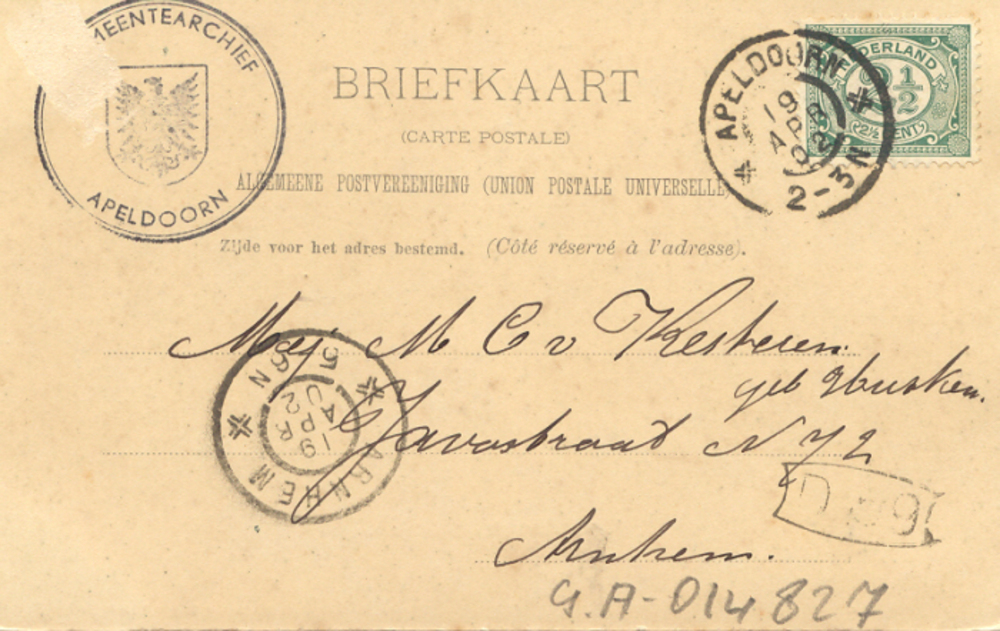 MEENTEARCHIEF
APELDOORN
BRIEFKAART
(CARTE POSTALE)
ALGEMEENE POSTVEREENIGING (UNION POSTALE UNIVERSELLE)
Zijde voor het adres bestemd. (Côté réservé à l'adresse).
APELDOORN
19
AP R
02
2-3N
NEDERLAND
2½
(2½ CENT)
Mej M C v Kesteren
geb
Javastraat N 72
Arnhem.
ARNHEM
19
AP R
02
5-6N
G.A-014827